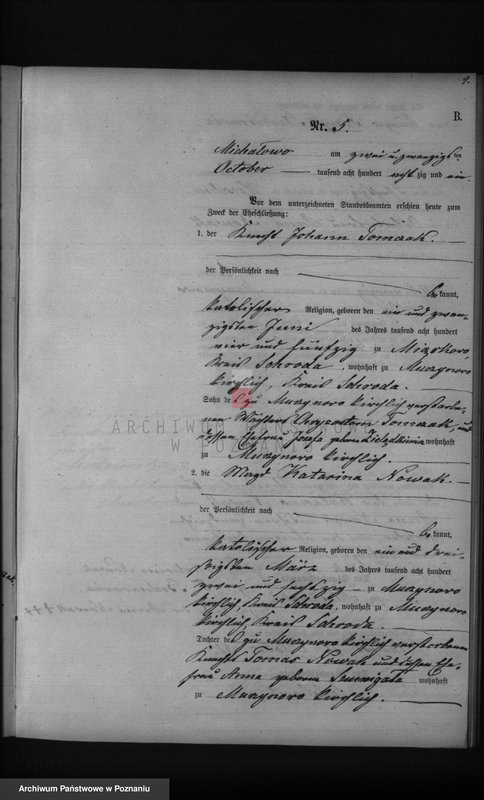 9.
B.
Nr. 5.
Michalowo am zwei u. zwanzigsten
October tausend acht hundert acht zig und ein
Vor dem unterzeichneten Standesbeamten erschien heute zum
Zweck der Eheschließung:
1. der Knecht Johann Tomczak.
der Persönlichkeit nach
be kannt,
katolischer Religion, geboren den ein und zwan-
zigsten Juni des Jahres tausend acht hundert
vier und fünfzig zu
Kreis Schroda, wohnhaft zu Murzynowo
kirchlich, Kreis Schroda.
Sohn des zu Murzynowo kirchlich verstorbe-
nen Tomczak, und
dessen Ehefrau Josefa geborene wohnhaft
zu Murzynowo kirchlich.
2. die Magd Katarina Nowak.
der Persönlichkeit nach
be kannt,
katolischer Religion, geboren den ein und drei-
ßigsten März des Jahres tausend acht hundert
zwei und sechszig zu Murzynowo
kirchlich, Kreis Schroda, wohnhaft zu Murzynowo
kirchlich, Kreis Schroda.
Tochter des zu Murzynowo kirchlich verstorbenen
Knechts Tomas Nowak und dessen Ehe-
frau Anna geborene wohnhaft
zu Murzynowo kirchlich.
ARCHIWUM PAŃSTWOWE
W POZNANIU
Archiwum Państwowe w Poznaniu